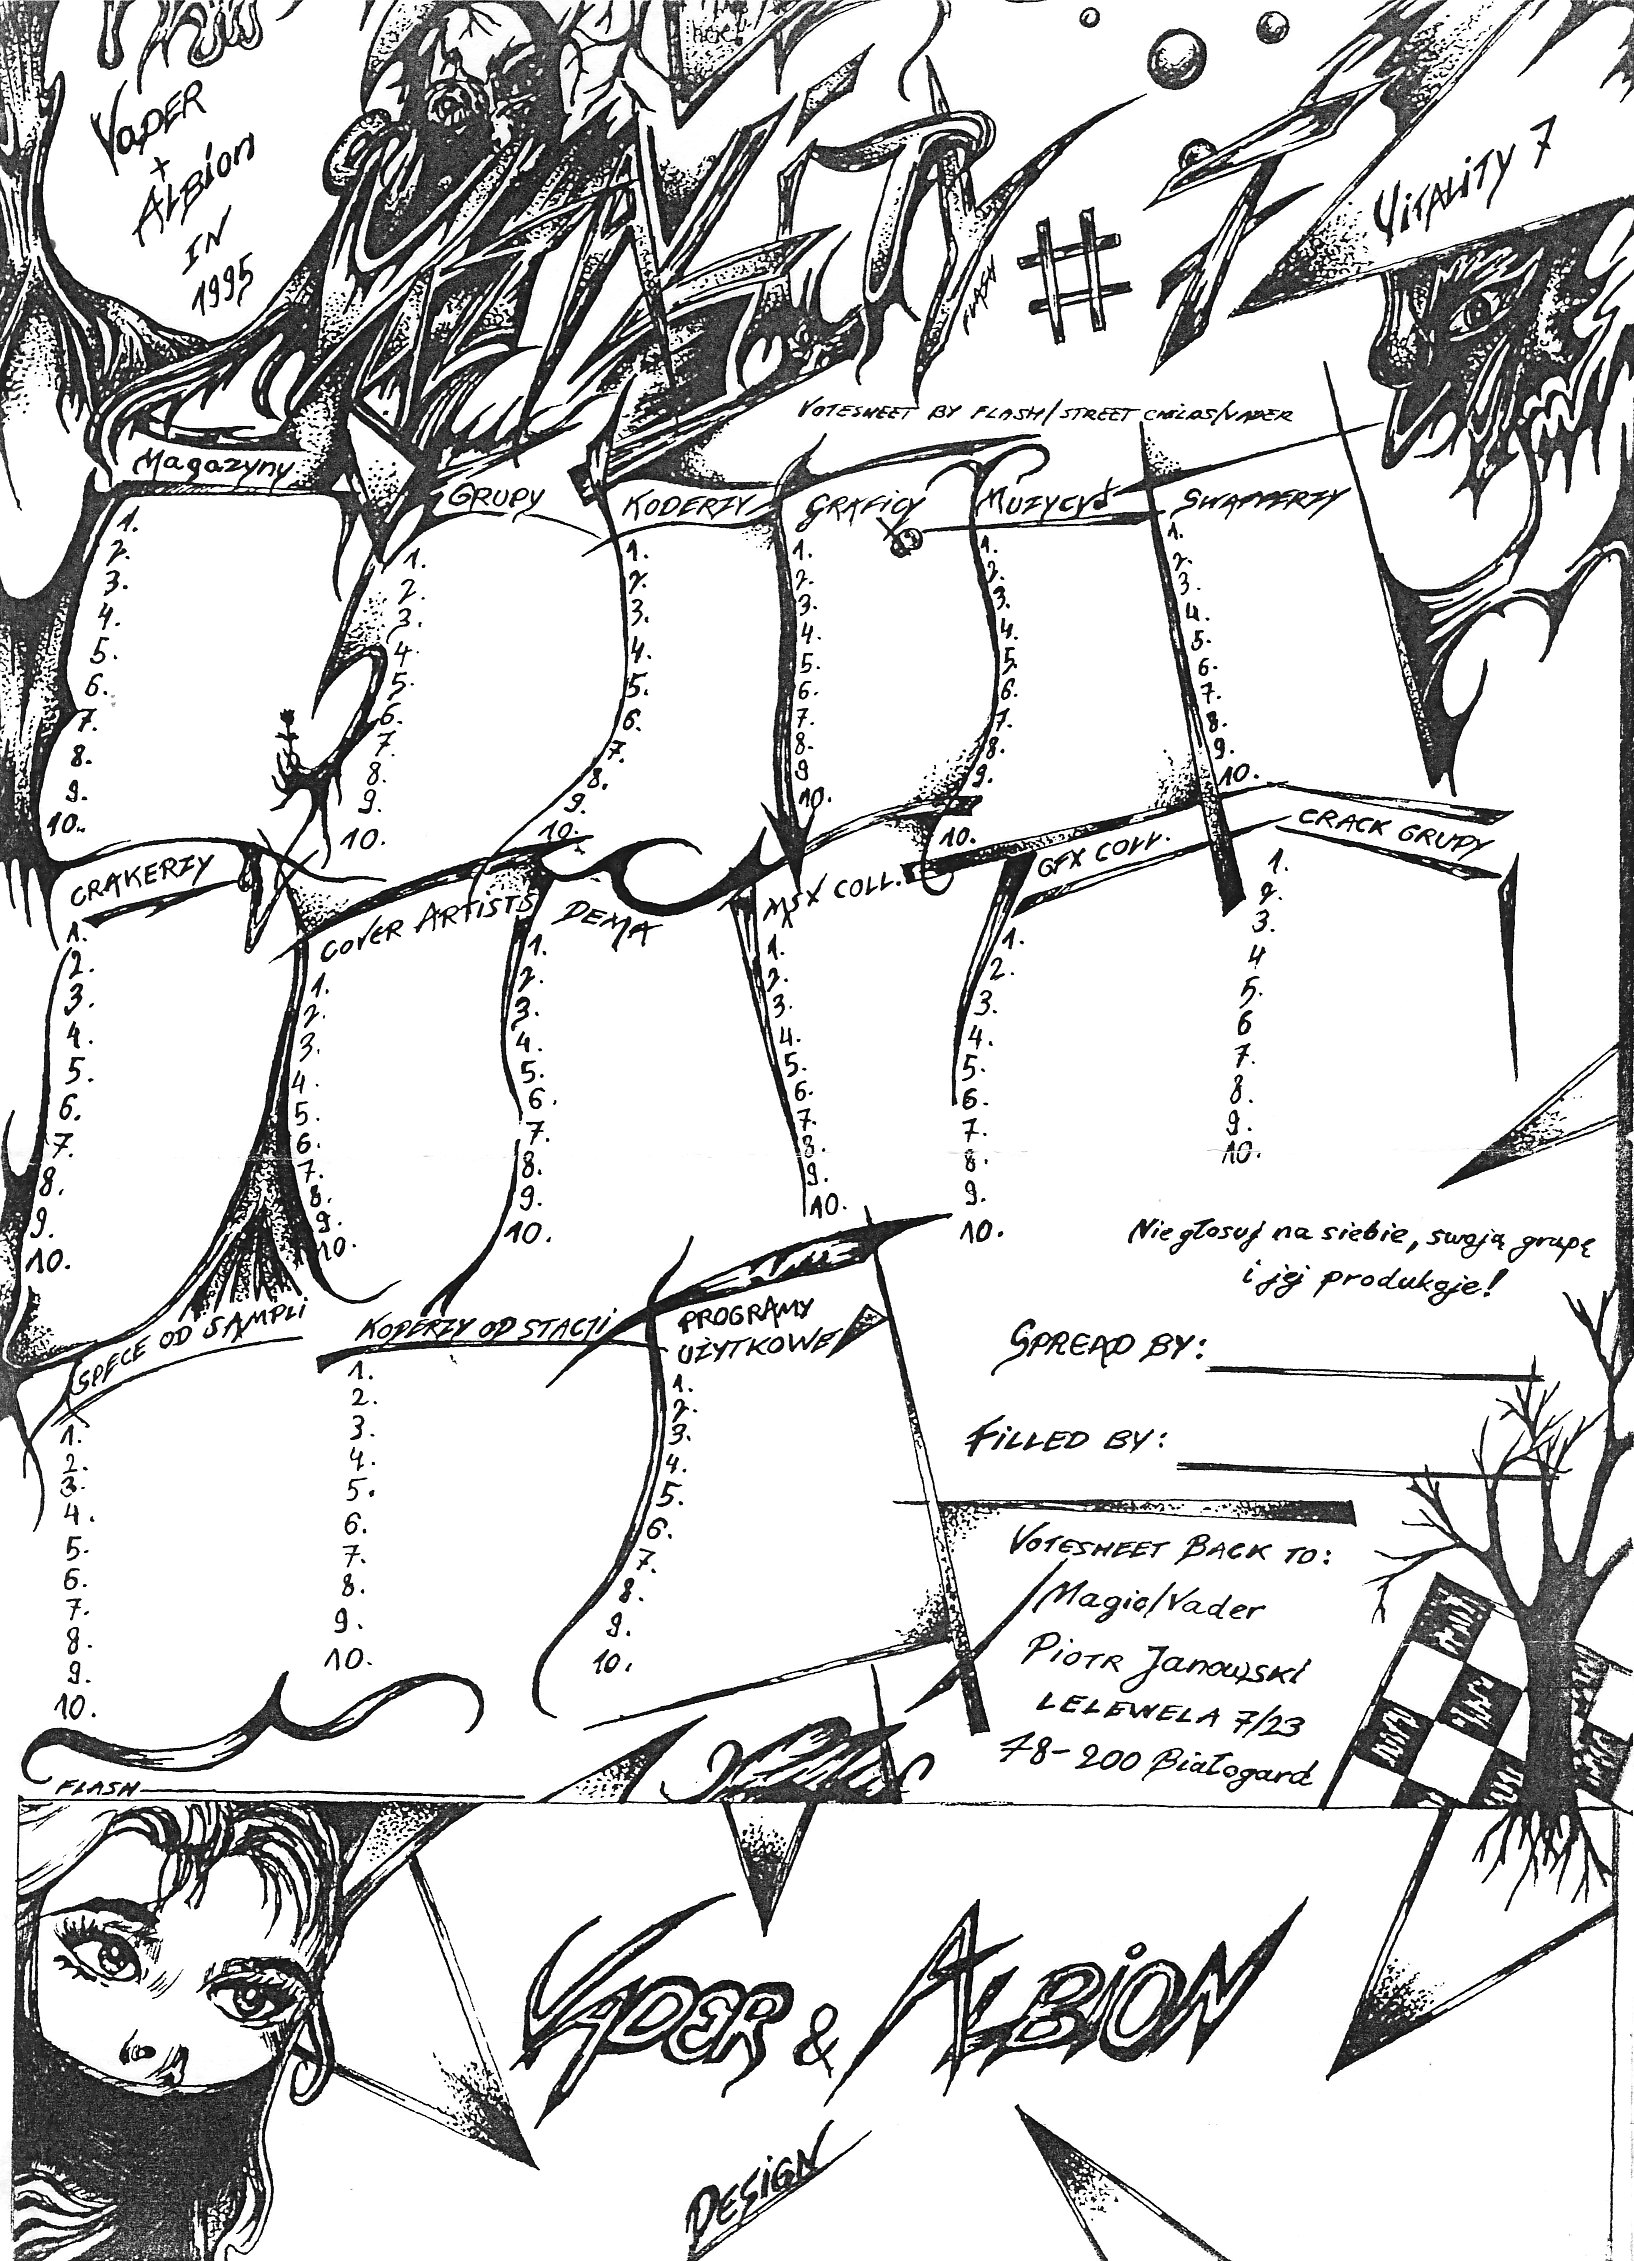 VADER
+
ALBION
IN
1995
VITALITY 7
# 7
FLASH
VOTESHEET BY FLASH/STREET CHILDS/VADER
Magazyny
1.
2.
3.
4.
5.
6.
7.
8.
9.
10.
GRUPY
1.
2.
3.
4.
5.
6.
7.
8.
9.
10.
KODERZY
1.
2.
3.
4.
5.
6.
7.
8.
9.
10.
GRAFICY
1.
2.
3.
4.
5.
6.
7.
8.
9
10.
MUZYCY
1.
2.
3.
4.
5.
6.
7.
8.
9.
10.
SWAPPERZY
1.
2.
3.
4.
5.
6.
7.
8.
9.
10.
CRAKERZY
1.
2.
3.
4.
5.
6.
7.
8.
9.
10.
COVER ARTISTS
1.
2.
3.
4.
5.
6.
7.
8.
9.
10.
DEMA
1.
2.
3.
4.
5.
6.
7.
8.
9.
10.
MSX COLL.
1.
2.
3.
4.
5.
6.
7.
8.
9.
10.
GFX COLL.
1.
2.
3.
4.
5.
6.
7.
8.
9.
10.
CRACK GRUPY
1.
2.
3.
4
5.
6
7.
8.
9.
10.
SPECE OD SAMPLI
1.
2.
3.
4.
5.
6.
7.
8.
9.
10.
KODERZY OD STACJI
1.
2.
3.
4.
5.
6.
7.
8.
9.
10.
PROGRAMY
UŻYTKOWE
1.
2.
3.
4.
5.
6.
7.
8.
9.
10.
Nie głosuj na siebie, swoją grupę
i jej produkcje!
SPREAD BY:
FILLED BY:
VOTESHEET BACK TO:
Magic/Vader
PIOTR Janowski
LELEWELA 7/23
78-200 Białogard
FLASH
VADER & ALBION
DESIGN